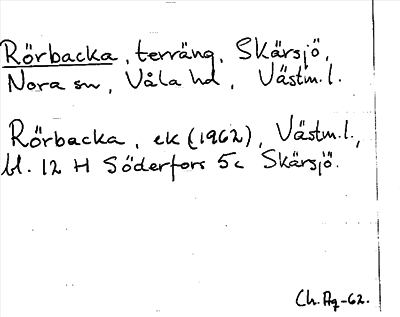 Rörbacka, terräng, Skärsjö,
Nora sn, Våla hd, Västm.l.
Rörbacka, ek (1962), Västm.l.,
bl. 12 H Söderfors 5c Skärsjö.
Ch. Ag -62.